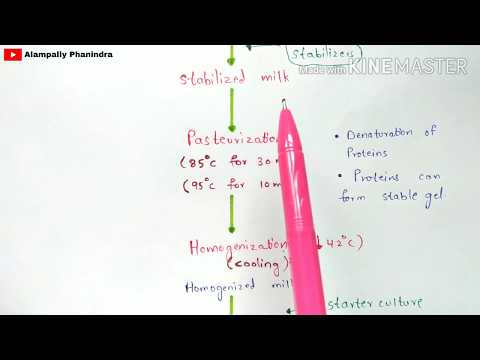 Alampally Phanindra
stabilizers
Made with KINEMASTER
stabilized milk
Pasteurization
(85°c for 30 m
(95°c for 10 m
• Denaturation of
Proteins
• Proteins can
form stable gel.
Homogenization ↓ 42°c)
(cooling)
Homogenized mil
starter culture